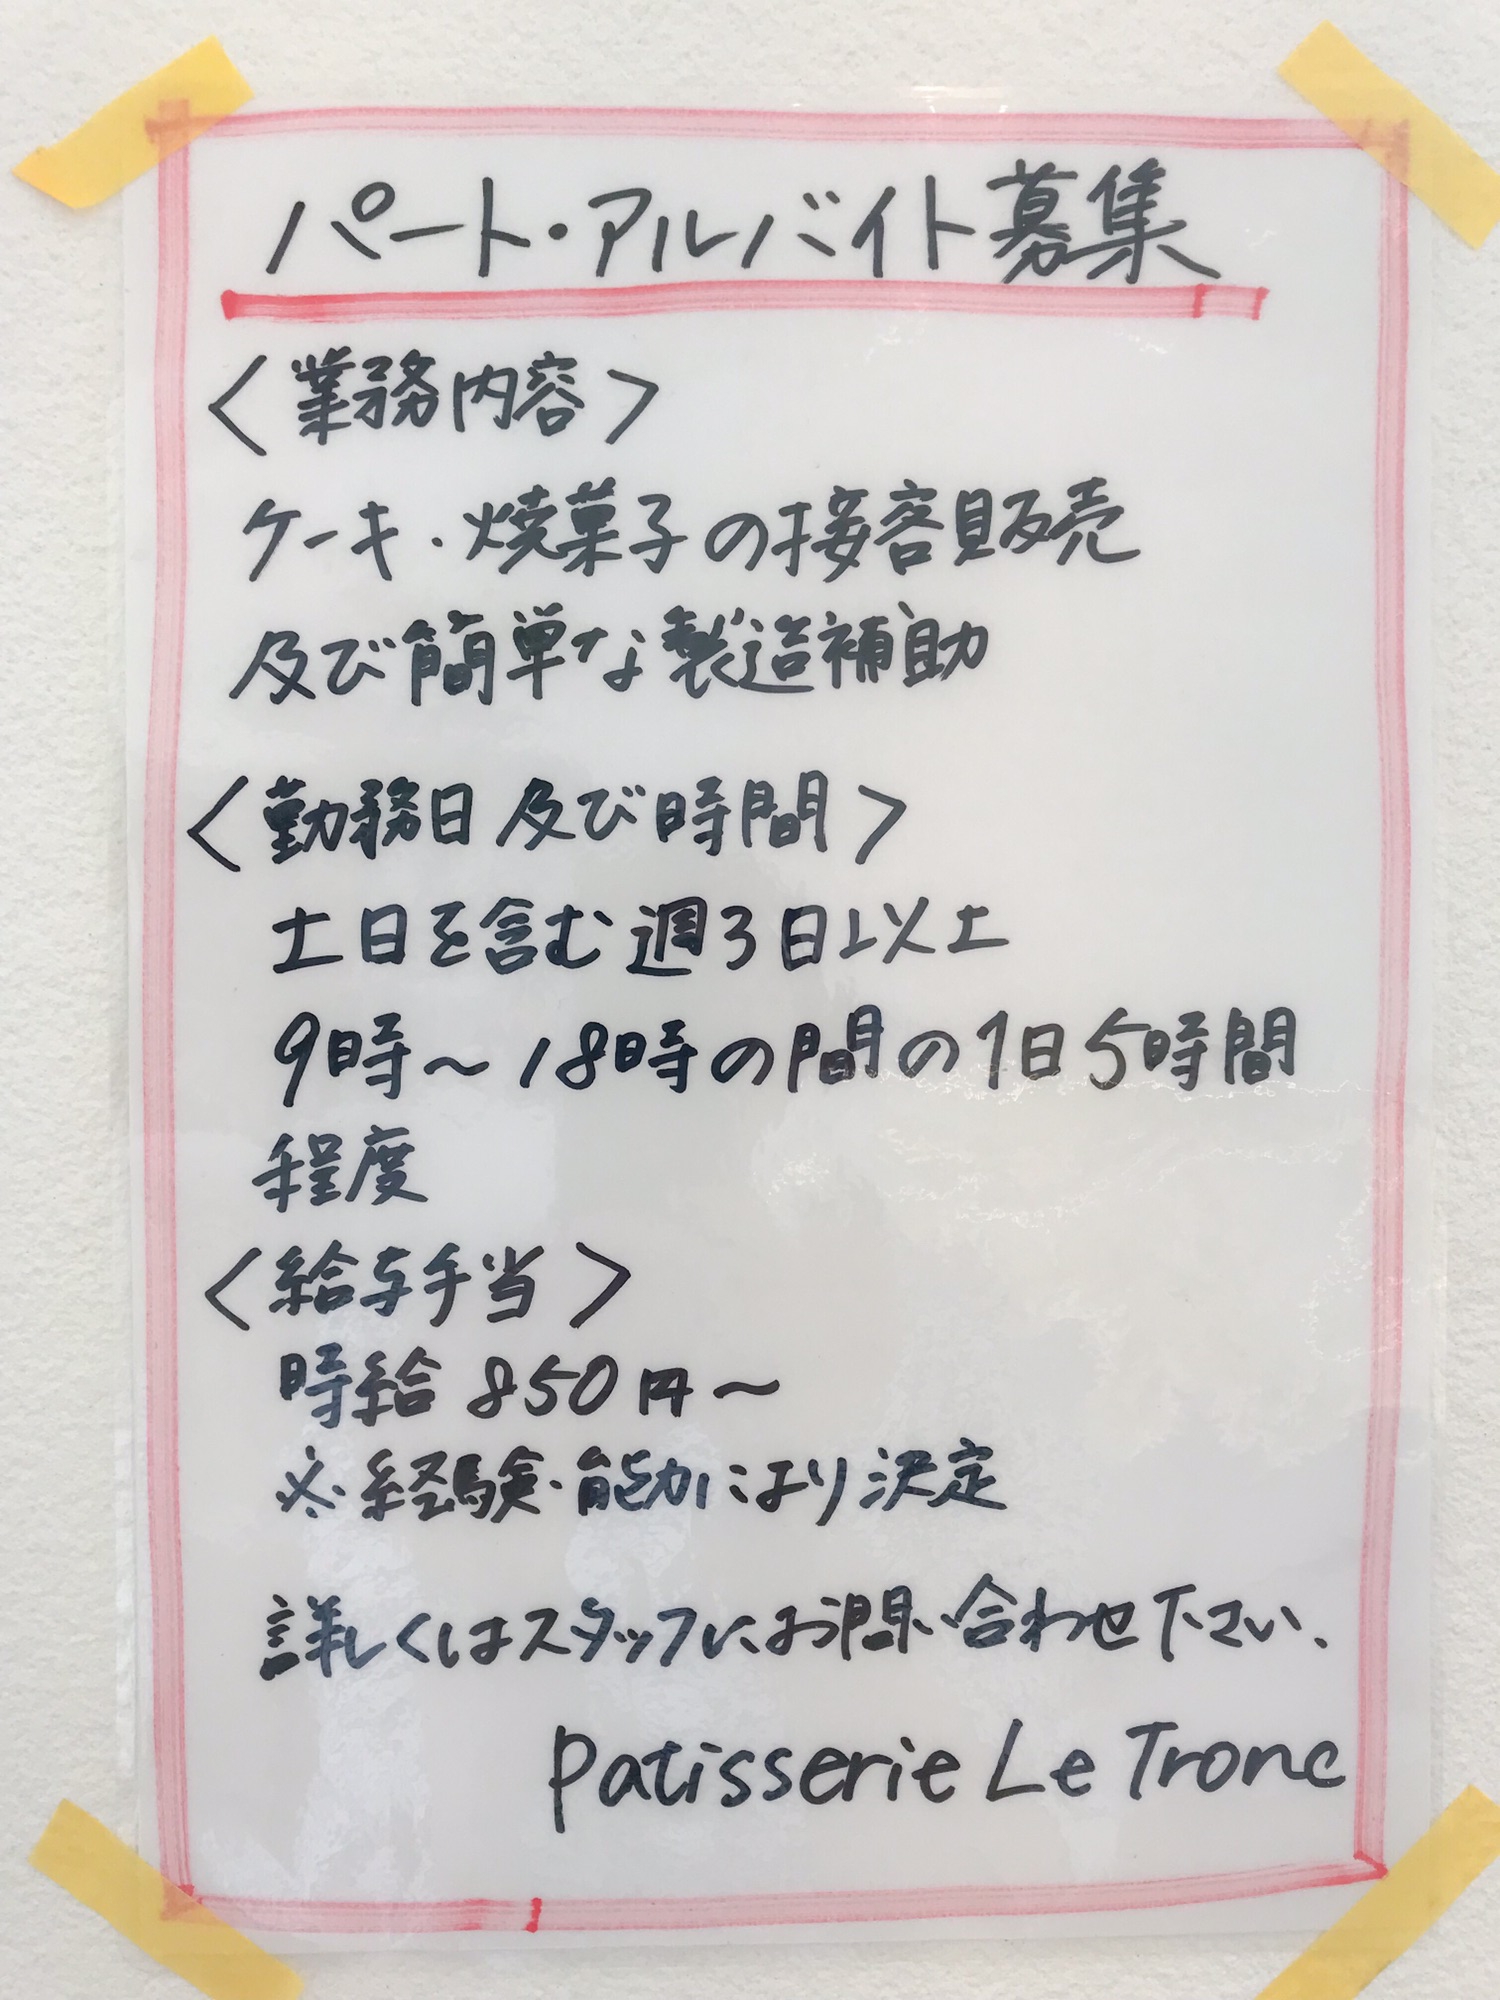 パート・アルバイト募集
〈業務内容〉
ケーキ・焼菓子の接客販売
及び簡単な製造補助
〈勤務日及び時間〉
土日を含む週3日以上
9時〜18時の間の1日5時間
程度
〈給与手当〉
時給850円〜
※経験・能力により決定
詳しくはスタッフにお問い合わせ下さい、
Patisserie Le Tronc